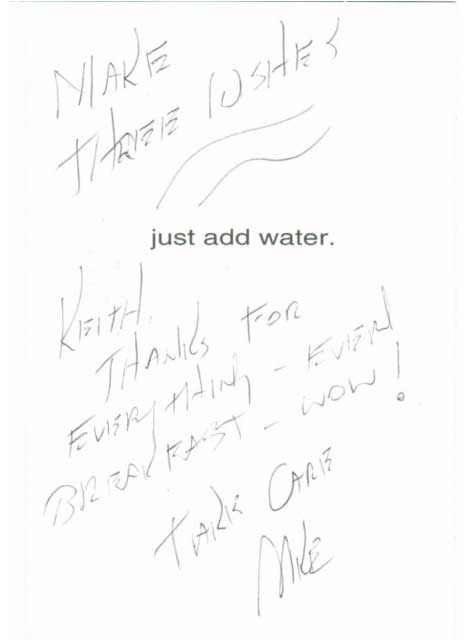 MAKE
THREE WISHES
just add water.
KEITH,
THANKS FOR
EVERYTHING - EVEN
BREAKFAST - WOW!
TAKE CARE
MIKE